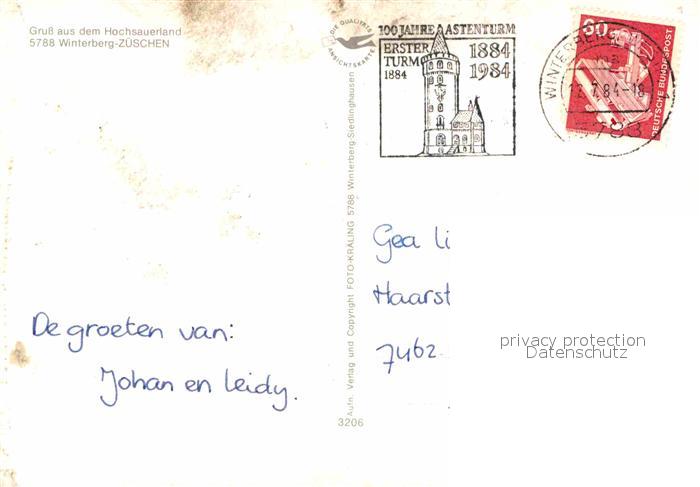 Gruß aus dem Hochsauerland
5788 Winterberg-ZÜSCHEN
DIE QUALITÄTS
ANSICHTSKARTE
100 JAHRE ASTENTURM
ERSTER
TURM
1884
1884
1984
WINTERBERG
17.7.84-18
5788
60
DEUTSCHE BUNDESPOST
Aufn. Verlag und Copyright FOTO-KRÄLING 5788 Winterberg-Siedlinghausen
3206
De groeten van:
Johan en Leidy.
Gea Li
Haarst
7462
privacy protection
Datenschutz